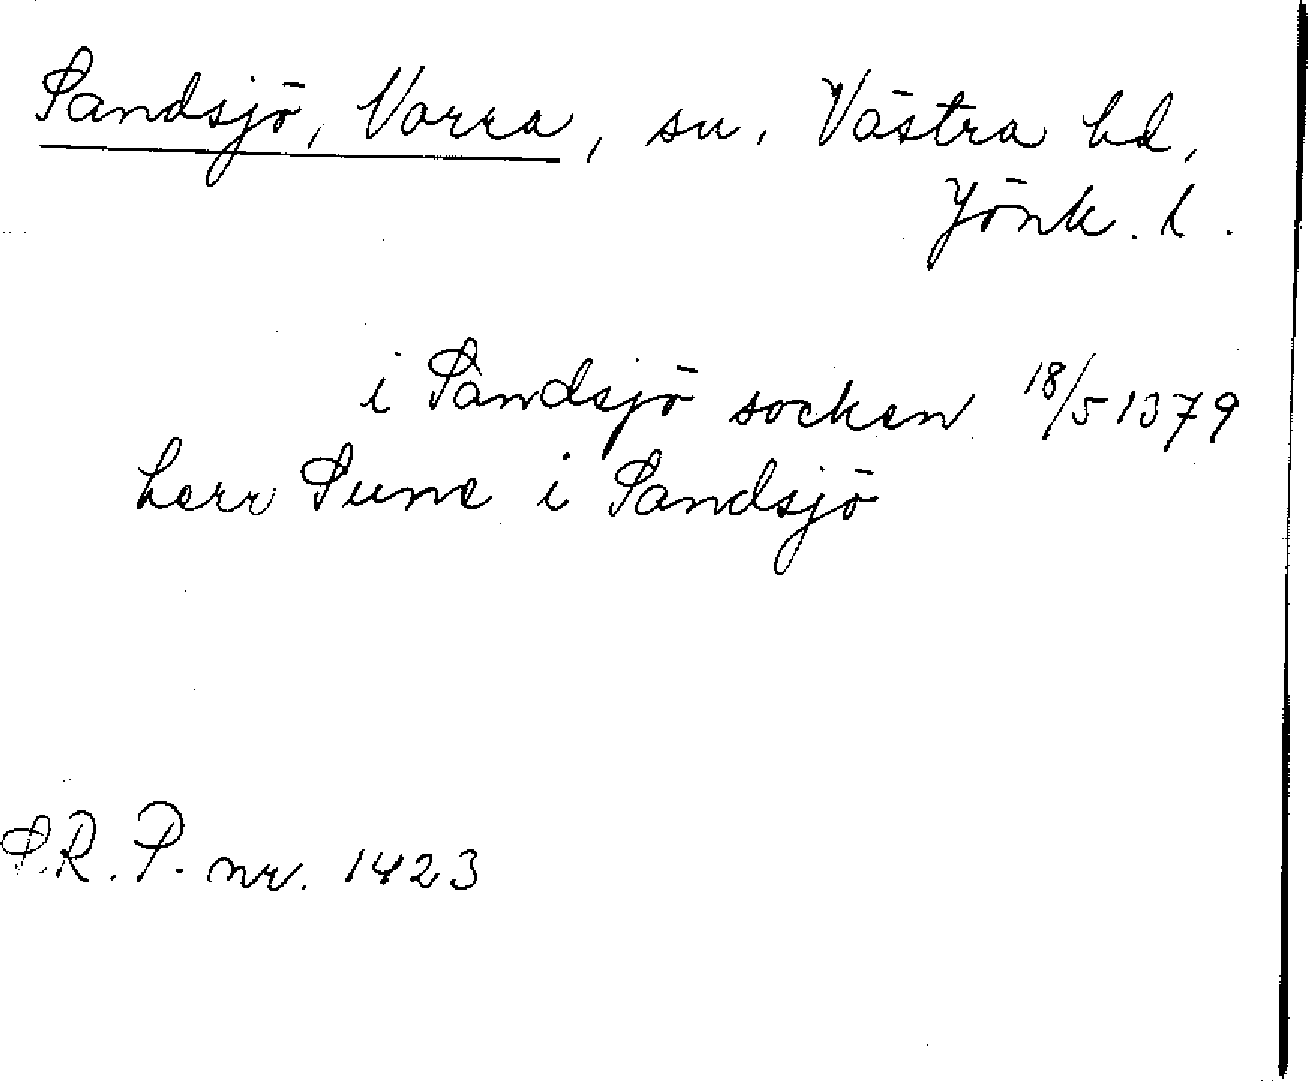 Sandsjö, Norra, sn. Västra hd,
Jönk. l.
i Sandsjö socken 18/5 1379
herr Sune i Sandsjö
S.R.P. nr. 1423